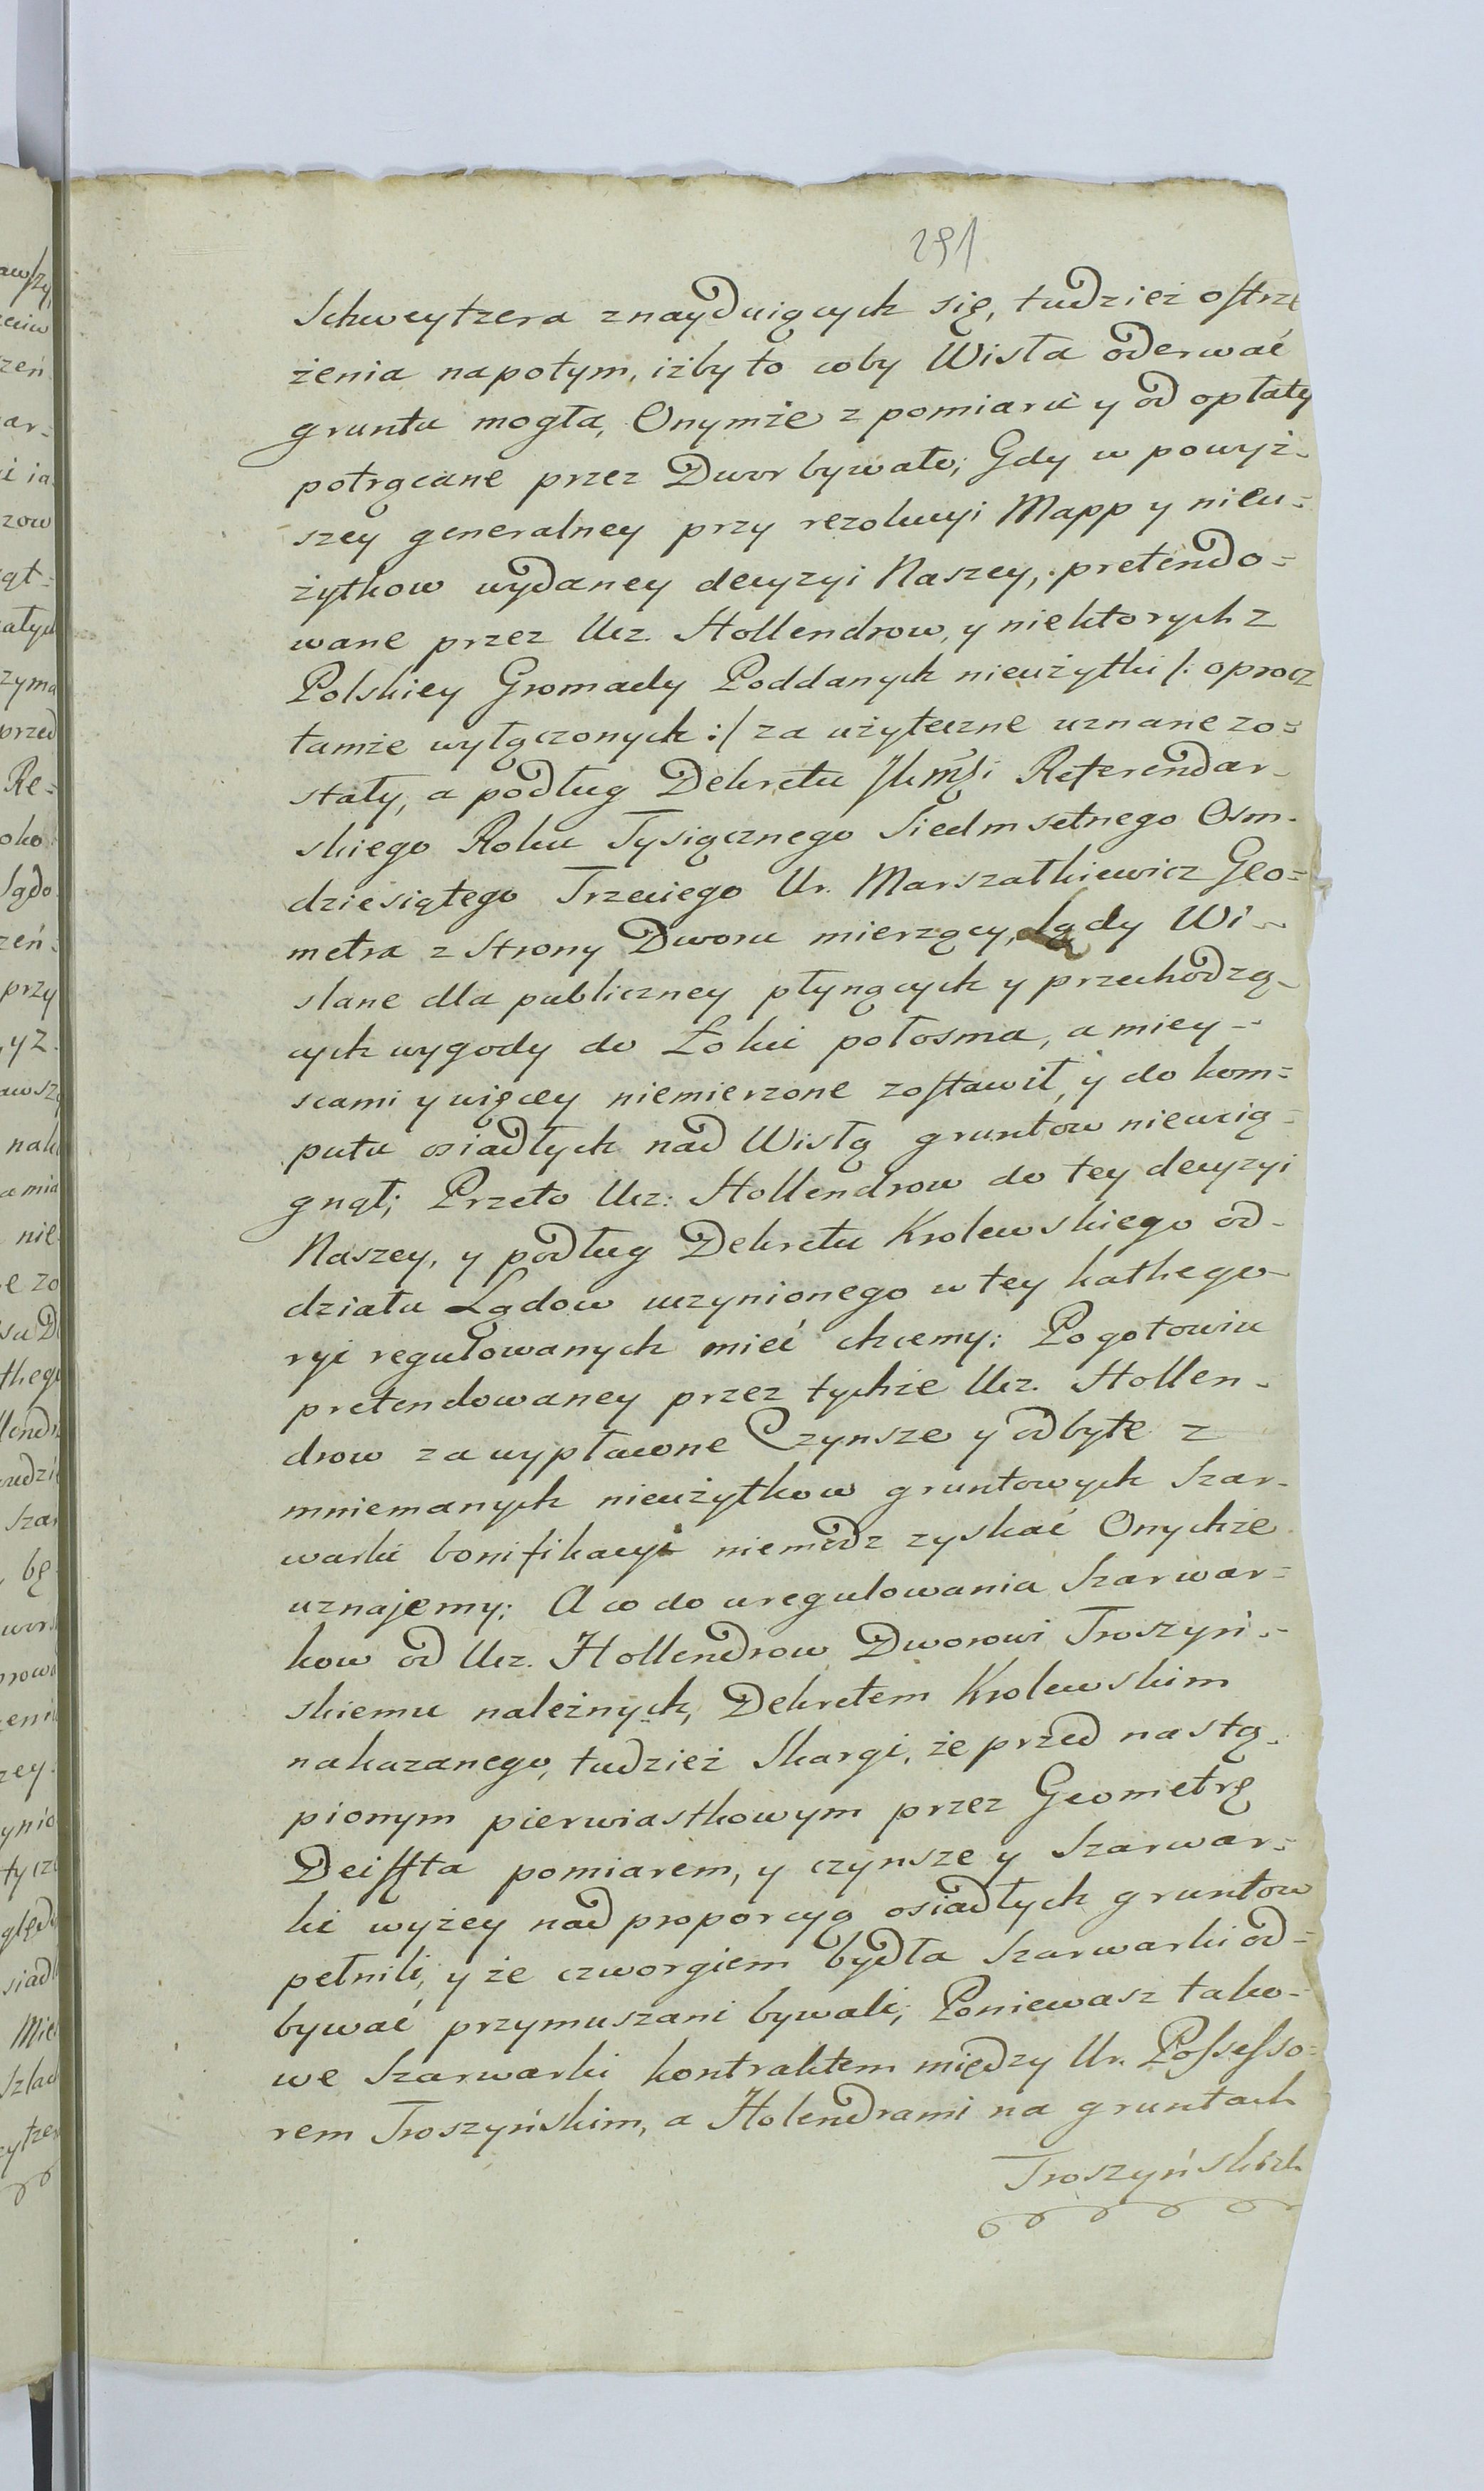 291
Schweytzera znayduiących się, tudzież ostrze
żenia napotym, iżby to coby Wisła oderwać
gruntu mogła, Onymże z pomiaru y od opłaty
potrącane przez Dwor bywało; Gdy w powyż-
szey generalney przy rezolucyi Mapp y nieu=
żytkow wydaney decyzyi Naszey, pretendo=
wane przez Ucz. Hollendrow, y niektorych z
Polskiey Gromady Poddanych nieużytki /: oprocz
tamże wyłączonych :/ za użyteczne uznane zo=
stały, a podług Dekretu Referendar-
skiego Roku Tysiącznego Siedmsetnego Osm-
dziesiątego Trzeciego Ur. Marszałkiewicz Geo=
metra z Strony Dworu mierzący, Lądy Wi-
slane dla publiczney płynących y przechodzą-
cych wygody do Łokci połosma, a miey-
scami y więcey niemierzone zostawił, y do kom=
putu osiadłych nad Wisłą gruntow niewcią=
gnął; Przeto Ucz: Hollendrow do tey decyzyi
Naszey, y podług Dekretu Krolewskiego od-
działu Lądow uczynionego w tey kathego-
ryi regulowanych mieć chcemy: Pogotowiu
pretendowaney przez tychże Ucz. Hollen-
drow za wypłacone Czynsze y odbyte z
mniemanych nieużytkow gruntowych Szar-
warki bonifikacyi niemodz zyskać Onychże
uznajemy; A co do uregulowania Szarwar=
kow od Ucz. Hollendrow Dworowi Troszyń-
skiemu należnych, Dekretem Krolewskim
nakazanego, tudzież Skargi, że przed nastą-
pionym pierwiastkowym przez Geometrę
Deiffta pomiarem, y czynsze y Szarwar=
ki wyżey nad proporcyą osiadłych gruntow
pełnili, y że czworgiem bydła Szarwarki od=
bywać przymuszani bywali; Poniewasz tako-
we Szarwarki kontraktem między Ur. Possesso=
rem Troszyńskim, a Holendrami na gruntach
Troszyńskich